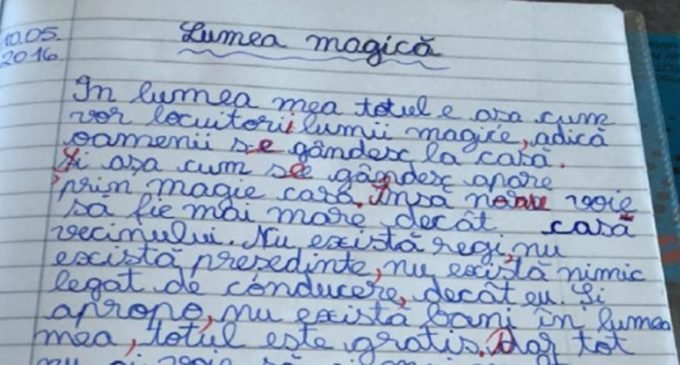 10.05.
2016.
Lumea magică
In lumea mea totul e asa cum
vor locuitorii lumii magice, adică
oamenii se gândesc la casă.
Și așa cum se gândesc apare
prin magie casa. Însa n-au voie
să fie mai mare decât casa
vecinului. Nu există regi, nu
există presedinte, nu există nimic
legat de conducere, decât eu. Și
apropo, nu există bani în lumea
mea, totul este gratis. Dar tot
nu ai voie să